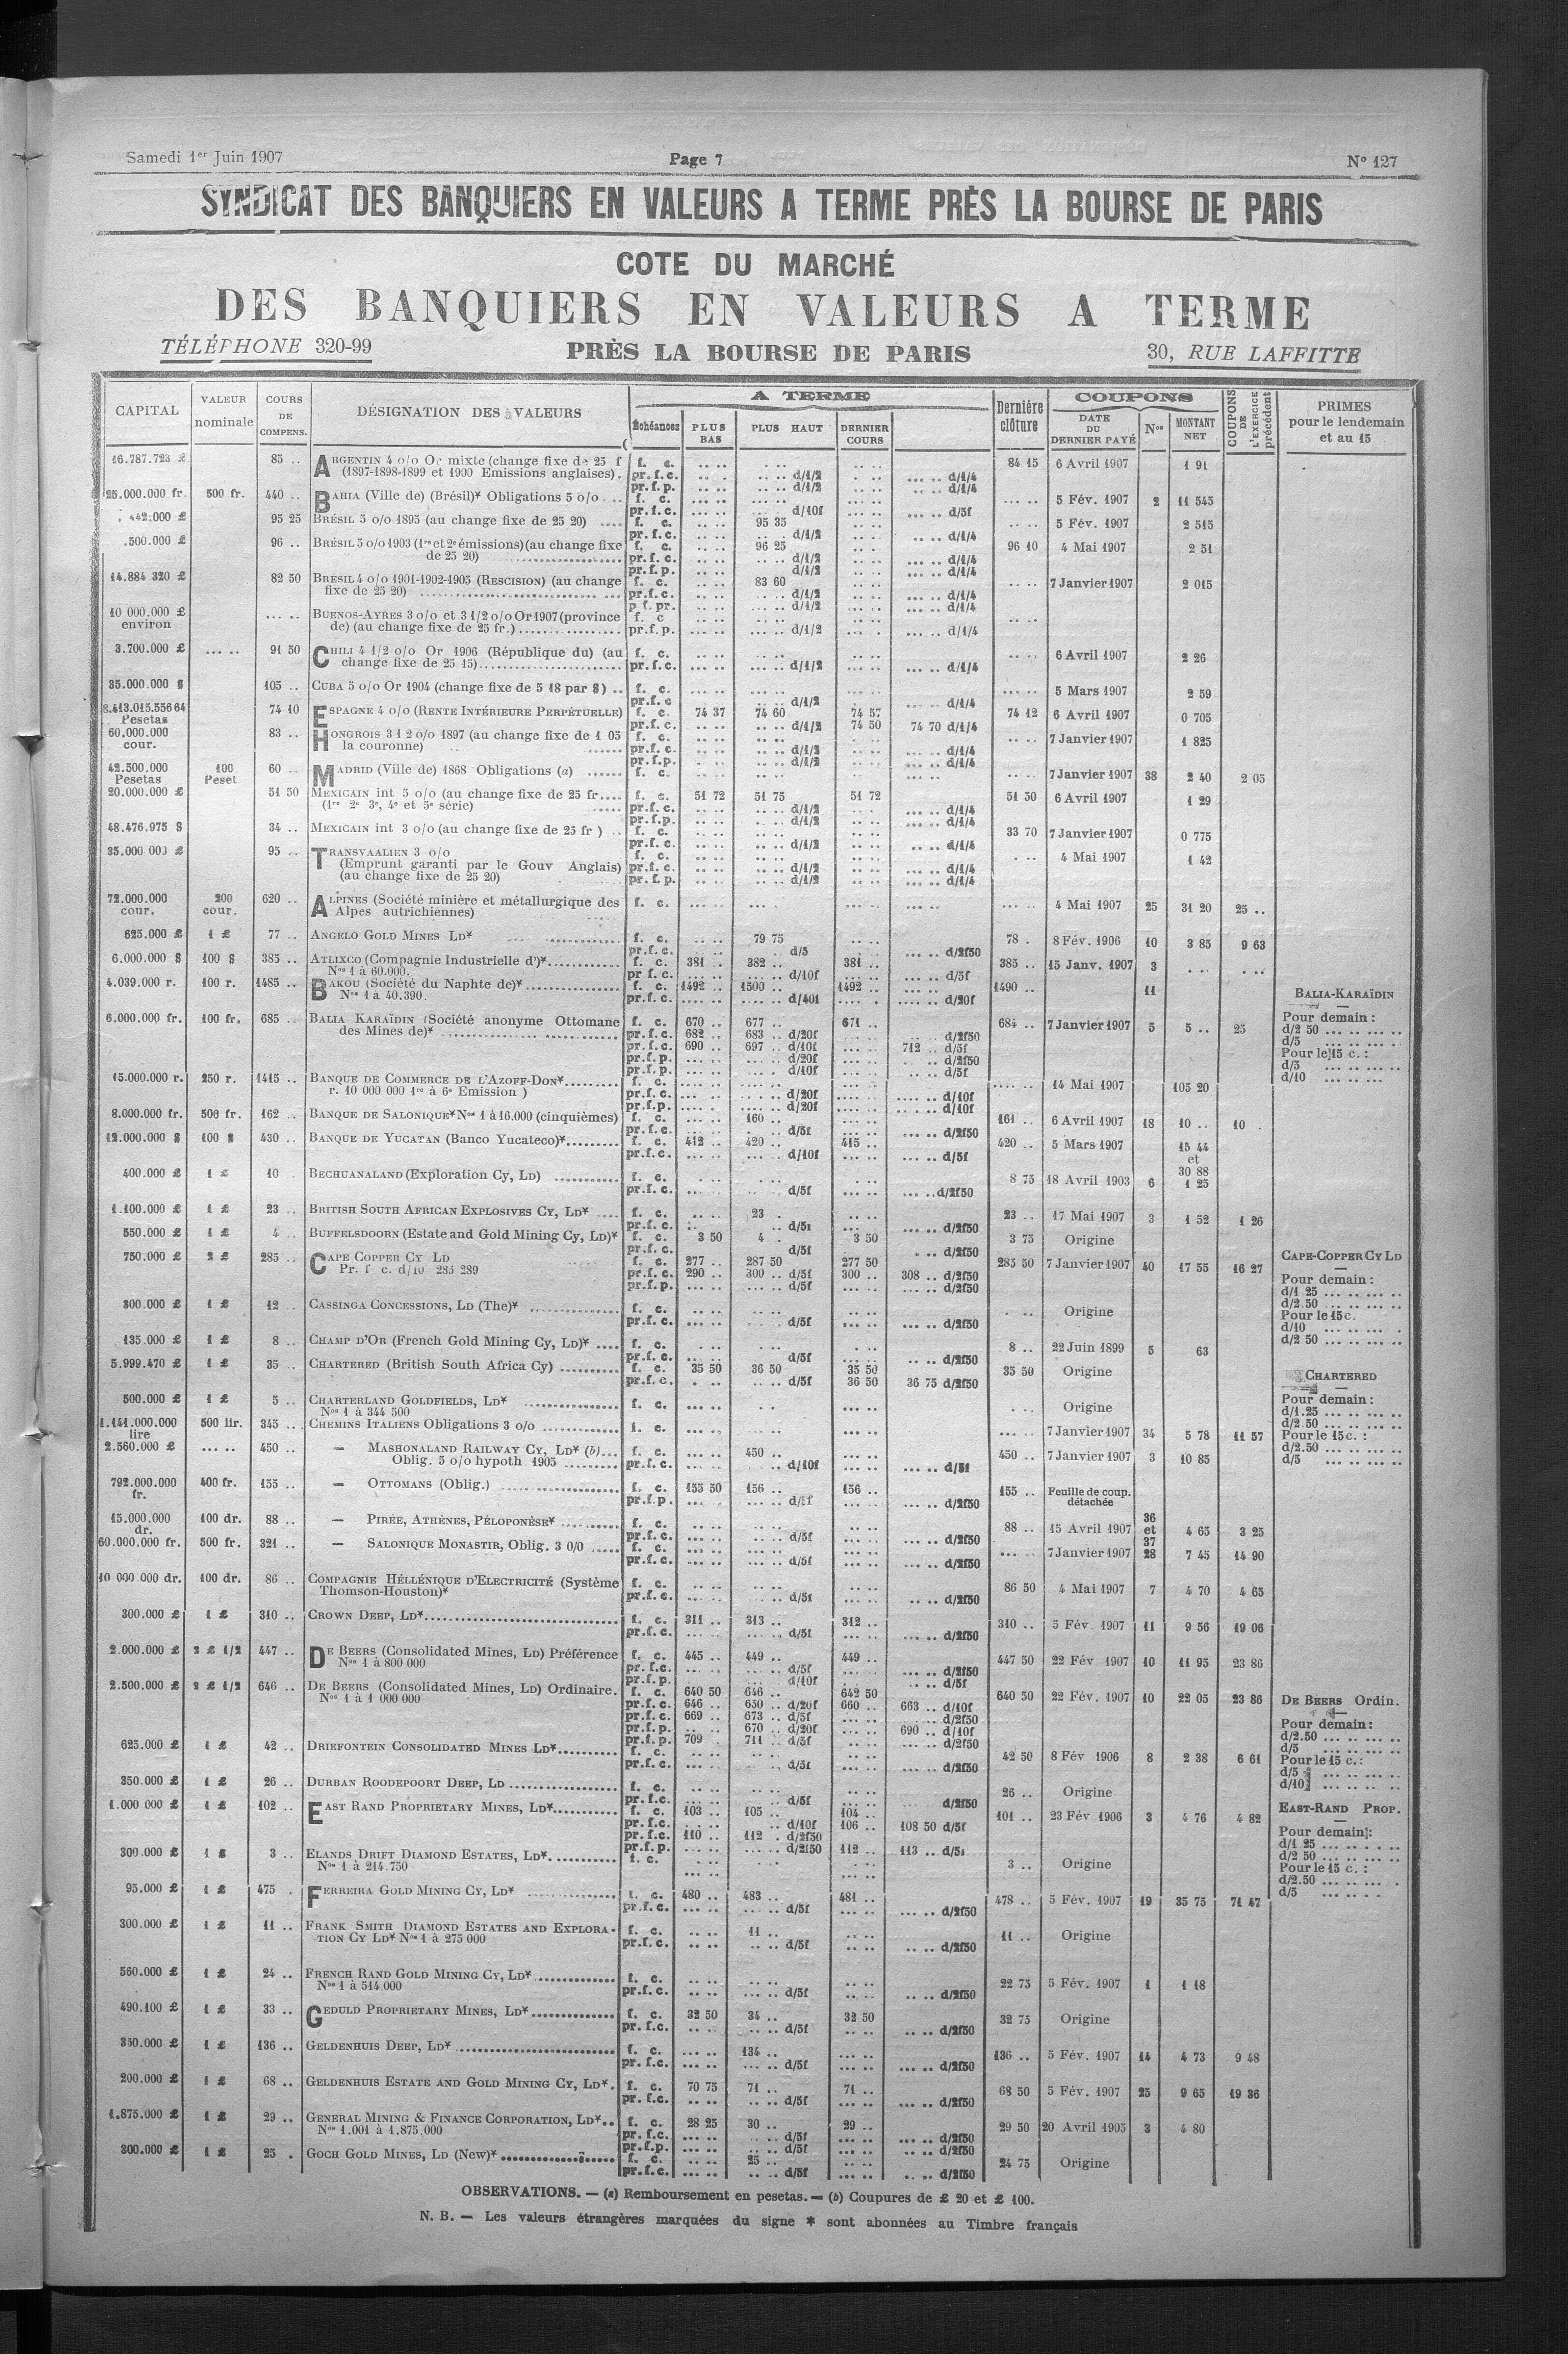 Samedi 1er Juin 1907 Page 7 N° 127
SYNDICAT DES BANQUIERS EN VALEURS A TERME PRÈS LA BOURSE DE PARIS
COTE DU MARCHÉ
DES BANQUIERS EN VALEURS A TERME
TÉLÉPHONE 320-99 PRÈS LA BOURSE DE PARIS 30, RUE LAFFITTE
CAPITAL VALEUR nominale COURS DE COMPENS. DÉSIGNATION DES VALEURS A TERME Échéances PLUS BAS PLUS HAUT DERNIER COURS Dernière clôture COUPONS DATE DU DERNIER PAYÉ Nos MONTANT NET COUPONS DE L'EXERCICE précédent PRIMES pour le lendemain et au 15
16.787.723 £ 85 .. ARGENTIN 4 o/o Or mixte (change fixe de 25 f f. c. 84 15 6 Avril 1907 1 91
(1897-1898-1899 et 1900 Emissions anglaises). pr.f.c. d/1/2 d/1/4
pr.f.p. d/1/2 d/1/4
25.000.000 fr. 500 fr. 440 .. BAHIA (Ville de) (Brésil)* Obligations 5 o/o f. c. 5 Fév. 1907 2 11 545
pr.f.c. d/10f d/5f
442.000 £ 95 25 BRÉSIL 5 o/o 1895 (au change fixe de 25 20) f. c. 95 35 5 Fév. 1907 2 515
pr.f.c. d/1/2 d/1/4
.500.000 £ 96 .. BRÉSIL 5 o/o 1903 (1re et 2e émissions) (au change fixe f. c. 96 25 96 10 4 Mai 1907 2 51
de 25 20) pr.f.c. d/1/2 d/1/4
pr.f.p. d/1/2 d/1/4
14.884 320 £ 82 50 BRÉSIL 4 o/o 1901-1902-1905 (RESCISION) (au change f. c. 83 60 7 Janvier 1907 2 015
fixe de 25 20) pr.f.c. d/1/2 d/1/4
p f. pr. d/1/2 d/1/4
10 000.000 £ environ BUENOS-AYRES 3 o/o et 3 1/2 o/o Or 1907 (province f. c
de) (au change fixe de 25 fr.) pr.f.p. d/1/2 d/1/4
3.700.000 £ 91 50 CHILI 4 1/2 o/o Or 1906 (République du) (au f. c. 6 Avril 1907 2 26
change fixe de 25 15) pr.f.c. d/1/2 d/1/4
35.000.000 $ 105 .. CUBA 5 o/o Or 1904 (change fixe de 5 18 par $) f. c. 5 Mars 1907 2 59
pr.f.c d/1/2 d/1/4
8.413.015.556 64 Pesetas 74 10 ESPAGNE 4 o/o (RENTE INTÉRIEURE PERPÉTUELLE) f. c. 74 37 74 60 74 57 74 12 6 Avril 1907 0 705
pr.f.c. d/1/2 74 50 74 70 d/1/4
60.000.000 cour. 83 .. HONGROIS 3 1 2 o/o 1897 (au change fixe de 1 05 f. c. 7 Janvier 1907 1 825
la couronne) pr.f.c. d/1/2 d/1/4
pr.f.p. d/1/2 d/1/4
42.500.000 Pesetas 100 Peset 60 .. MADRID (Ville de) 1868 Obligations (a) f. c. 7 Janvier 1907 38 2 40 2 05
20.000.000 £ 51 50 MEXICAIN int 5 o/o (au change fixe de 25 fr. f. c. 51 72 51 75 51 72 51 50 6 Avril 1907 1 29
(1re 2e 3e, 4e et 5e série) pr.f.c. d/1/2 d/1/4
pr.f.p. d/1/2 d/1/4
48.476.975 $ 34 .. MEXICAIN int 3 o/o (au change fixe de 25 fr ) f. c. 33 70 7 Janvier 1907 0 775
pr.f.c. d/1/2 d/1/4
35.000 000 £ 95 .. TRANSVAALIEN 3 o/o f. c. 4 Mai 1907 1 42
(Emprunt garanti par le Gouv Anglais) pr.f.c. d/1/2 d/1/4
(au change fixe de 25 20) pr.f.p. d/1/2 d/1/4
72.000.000 cour. 200 cour. 620 .. ALPINES (Société minière et métallurgique des f. c. 4 Mai 1907 25 31 20 25 ..
Alpes autrichiennes)
625.000 £ 1 £ 77 .. ANGELO GOLD MINES LD* f. c. 79 75 78 . 8 Fév. 1906 10 3 85 9 63
pr.f.c. d/5 d/2f50
6.000.000 $ 100 $ 385 .. ATLIXCO (Compagnie Industrielle d')* f. c. 381 .. 382 .. 381 .. 385 .. 15 Janv. 1907 3
Nos 1 à 60.000. pr f.c. d/10f d/5f
4.039.000 r. 100 r. 1485 .. BAKOU (Société du Naphte de)* f. c. 1492 .. 1500 .. 1492 .. 1490 .. 11
Nos 1 à 40.390. pr.f.c. d/40f d/20f
6.000.000 fr. 100 fr. 685 .. BALIA KARAÏDIN (Société anonyme Ottomane f. c. 670 .. 677 .. 671 .. 684 .. 7 Janvier 1907 5 5 .. 25
des Mines de)* pr.f.c. 682 .. 683 .. d/20f d/2f50
pr.f.c. 690 .. 697 .. d/10f 712 .. d/5f
pr.f.p. d/20f d/2f50
pr.f.p. d/10f d/5f
BALIA-KARAÏDIN
Pour demain :
d/2 50
d/5
Pour le 15 c. :
d/5
d/10
15.000.000 r. 250 r. 1415 .. BANQUE DE COMMERCE DE L'AZOFF-DON* f. c. 14 Mai 1907 105 20
r. 10 000 000 1re à 6e Emission ) pr.f.c. d/20f d/10f
pr.f.p. d/20f d/10f
8.000.000 fr. 500 fr. 162 .. BANQUE DE SALONIQUE* Nos 1 à 16.000 (cinquièmes) f. c. 160 .. 161 .. 6 Avril 1907 18 10 .. 10 .
pr.f.c. d/5f d/2f50
12.000.000 $ 100 $ 430 .. BANQUE DE YUCATAN (Banco Yucateco)* f. c. 412 .. 420 .. 415 .. 420 .. 5 Mars 1907 15 44 et 30 88
pr.f.c. d/10f d/5f
400.000 £ 1 £ 10 BECHUANALAND (Exploration Cy, LD) f. c. 8 75 18 Avril 1903 6 1 25
pr.f.c. d/5f d/2f50
1.100.000 £ 1 £ 23 .. BRITISH SOUTH AFRICAN EXPLOSIVES CY, LD* f. c. 23 . 23 .. 17 Mai 1907 3 1 52 1 26
pr.f.c. d/5f d/2f50
550.000 £ 1 £ 4 .. BUFFELSDOORN (Estate and Gold Mining Cy, LD)* f. c. 3 50 4 . 3 50 3 75 Origine
pr.f.c. d/5f d/2f50
750.000 £ 2 £ 285 .. CAPE COPPER CY LD f. c. 277 .. 287 50 277 50 285 50 7 Janvier 1907 40 17 55 16 27
Pr. f c. d/10 285 289 pr.f.c. 290 .. 300 .. d/5f 300 .. 308 .. d/2f50
pr.f.p. d/5f d/2f50
CAPE-COPPER CY LD
Pour demain :
d/1 25
d/2.50
Pour le 15 c.
d/10
d/2 50
300.000 £ 1 £ 12 .. CASSINGA CONCESSIONS, LD (The)* f. c. Origine
pr.f.c. d/5f d/2f50
135.000 £ 1 £ 8 .. CHAMP D'OR (French Gold Mining Cy, LD)* f. c. 8 .. 22 Juin 1899 5 63
pr.f.c. d/5f d/2f50
5.999.470 £ 1 £ 35 .. CHARTERED (British South Africa Cy) f. c. 35 50 36 50 35 50 35 50 Origine
pr.f.c. d/5f 36 50 36 75 d/2f50
CHARTERED
Pour demain :
d/1.25
d/2.50
Pour le 15 c. :
d/2.50
d/5
500.000 £ 1 £ 5 .. CHARTERLAND GOLDFIELDS, LD* f. c. Origine
Nos 1 à 344 500
1.141.000.000 lire 500 lir. 345 .. CHEMINS ITALIENS Obligations 3 o/o f. c. 7 Janvier 1907 34 5 78 11 57
2.560.000 £ 450 .. — MASHONALAND RAILWAY CY, LD* (b) f. c. 450 .. 450 .. 7 Janvier 1907 3 10 85
Oblig. 5 o/o hypoth 1905 pr.f.c. d/10f d/5f
792.000.000 fr. 400 fr. 155 .. — OTTOMANS (Oblig.) f. c. 155 50 156 .. 156 .. 155 .. Feuille de coup. détachée
pr.f.p. d/5f d/2f50
15.000.000 dr. 100 dr. 88 .. — PIRÉE, ATHÈNES, PÉLOPONÈSE* f. c. 88 .. 15 Avril 1907 36 et 37 4 65 3 25
pr.f.c. d/5f d/2f50
60.000.000 fr. 500 fr. 321 .. — SALONIQUE MONASTIR, Oblig. 3 0/0 f. c. 7 Janvier 1907 28 7 45 14 90
pr.f.c. d/5f d/2f50
10 000.000 dr. 100 dr. 86 .. COMPAGNIE HÉLLÉNIQUE D'ELECTRICITÉ (Système f. c. 86 50 4 Mai 1907 7 4 70 4 65
Thomson-Houston)* pr.f.c. d/5f d/2f50
300.000 £ 1 £ 310 .. CROWN DEEP, LD* f. c. 311 .. 313 .. 312 .. 310 .. 5 Fév. 1907 11 9 56 19 06
pr.f.c. d/5f d/2f50
2.000.000 £ 2 £ 1/2 447 .. DE BEERS (Consolidated Mines, LD) Préférence f. c. 445 .. 449 .. 449 .. 447 50 22 Fév. 1907 10 11 95 23 86
Nos 1 à 800 000 pr.f.c. d/5f d/2f50
pr.f.p. d/10f d/5f
2.500.000 £ 2 £ 1/2 646 .. DE BEERS (Consolidated Mines, LD) Ordinaire. f. c. 640 50 646 .. 642 50 640 50 22 Fév. 1907 10 22 05 23 86
Nos 1 à 1 000 000 pr.f.c. 646 .. 650 .. d/20f 660 .. 663 .. d/10f
pr.f.c. 669 .. 673 .. d/5f d/2f50
pr.f.p. 670 .. d/20f 690 .. d/10f
pr.f.p. 709 . 711 .. d/5f d/2f50
DE BEERS Ordin.
Pour demain :
d/2.50
d/5
Pour le 15 c. :
d/5
d/10
625.000 £ 1 £ 42 .. DRIEFONTEIN CONSOLIDATED MINES LD* f. c. 42 50 8 Fév 1906 8 2 38 6 61
pr.f.c. d/5f d/2f50
350.000 £ 1 £ 26 .. DURBAN ROODEPOORT DEEP, LD f. c. 26 .. Origine
pr.f.c. d/5f d/2f50
1.000 000 £ 1 £ 102 .. EAST RAND PROPRIETARY MINES, LD* f. c. 103 .. 105 .. 104 .. 101 .. 23 Fév 1906 3 4 76 4 82
pr.f.c. d/10f 106 .. 108 50 d/5f
pr.f.c. 110 .. 112 . d/2f50
pr.f.p. d/2f50 112 .. 113 .. d/5f
EAST-RAND PROP.
Pour demain :
d/1 25
d/2 50
Pour le 15 c. :
d/2.50
d/5
300.000 £ 1 £ 3 .. ELANDS DRIFT DIAMOND ESTATES, LD* f. c. 3 .. Origine
Nos 1 à 214.750
95.000 £ 1 £ 475 . FERREIRA GOLD MINING CY, LD* f. c. 480 .. 483 .. 481 .. 478 .. 5 Fév. 1907 19 35 75 71 47
pr.f.c. d/5f d/2f50
300.000 £ 1 £ 11 .. FRANK SMITH DIAMOND ESTATES AND EXPLORA- f. c. 11 .. 11 .. Origine
TION CY LD* Nos 1 à 275 000 pr.f.c. d/5f d/2f50
560.000 £ 1 £ 24 .. FRENCH RAND GOLD MINING CY, LD* f. c. 22 75 5 Fév. 1907 1 1 18
Nos 1 à 514.000 pr.f.c. d/5f d/2f50
490.100 £ 1 £ 33 .. GEDULD PROPRIETARY MINES, LD* f. c. 32 50 34 .. 32 50 32 75 Origine
pr.f.c. d/5f d/2f50
350.000 £ 1 £ 136 .. GELDENHUIS DEEP, LD* f. c. 134 .. 136 .. 5 Fév. 1907 14 4 73 9 48
pr.f.c. d/5f d/2f50
200.000 £ 1 £ 68 .. GELDENHUIS ESTATE AND GOLD MINING CY, LD*. f. c. 70 75 71 .. 71 .. 68 50 5 Fév. 1907 25 9 65 19 36
pr.f.c. d/5f d/2f50
1.875.000 £ 1 £ 29 .. GENERAL MINING & FINANCE CORPORATION, LD* f. c. 28 25 30 .. 29 .. 29 50 20 Avril 1905 3 4 80
Nos 1.001 à 1.875.000 pr.f.c. d/5f d/2f50
pr.f.p. d/5f d/2f50
300.000 £ 1 £ 25 . GOCH GOLD MINES, LD (New)* f. c. 25 .. 24 75 Origine
pr.f.c. d/5f d/2f50
OBSERVATIONS. — (a) Remboursement en pesetas. — (b) Coupures de £ 20 et £ 100.
N. B. — Les valeurs étrangères marquées du signe * sont abonnées au Timbre français